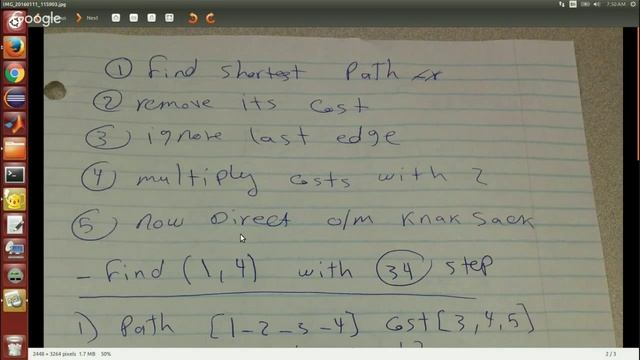 IMG_20160111_115903.jpg
7:50 AM
Google
Next
① find shortest Path
② remove its cost
③ ignore last edge
④ multiply costs with 2
⑤ now Direct o/m Knak Sack
- find (1,4) with 34 step
1) Path [1-2-3-4] cost [3,4,5]
2448 × 3264 pixels 1.7 MB 50%
2 / 3